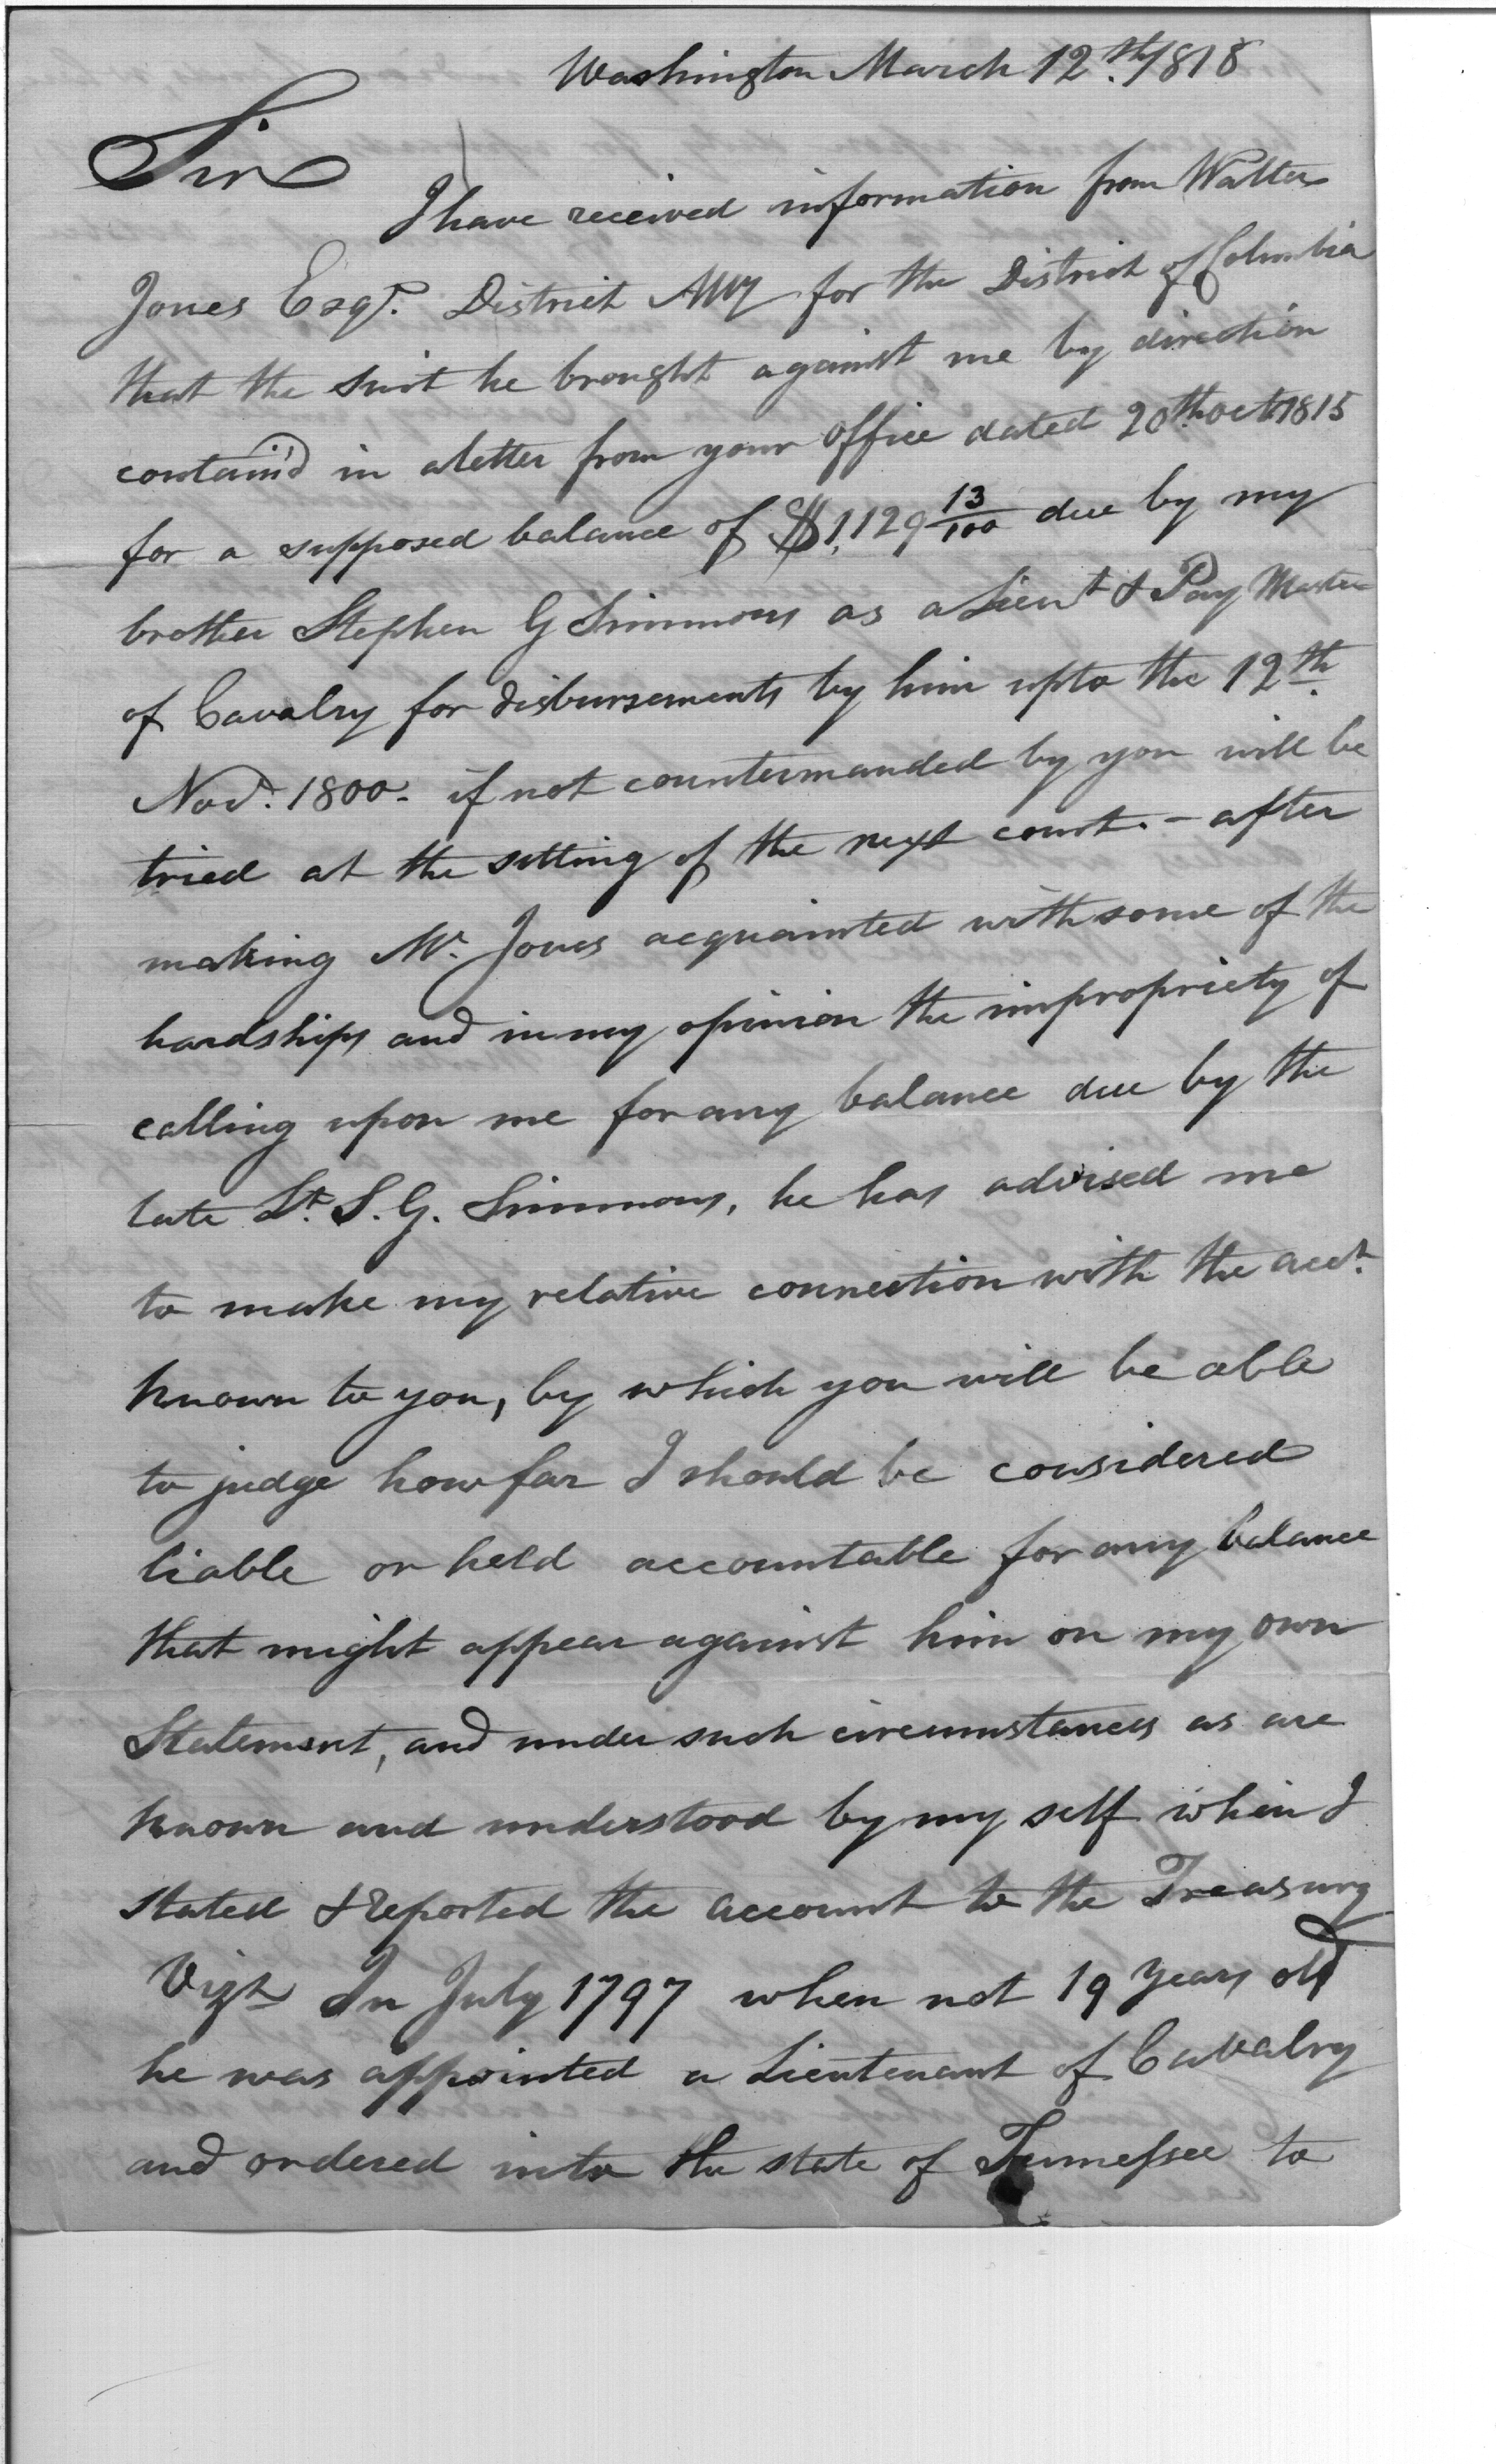 Washington March 12th. 1818
Sir
I have received information from Walter
Jones Esqr. District Atty for the District of Columbia
that the suit he brought against me by direction
contain'd in a letter from your office dated 20th. Oct 1815
for a supposed balance of $1,129 13/100 due by my
brother Stephen G Simmons as a Lieut & Pay Master
of Cavalry for disbursements by him upto the 12th.
Nov. 1800. if not countermanded by you will be
tried at the setting of the next court. - after
making Mr. Jones acquainted with some of the
hardships and in my opinion the impropriety of
calling upon me for any balance due by the
late Lt. S. G. Simmons, he has advised me
to make my relative connection with the acct.
known to you, by which you will be able
to judge how far I should be considered
liable or held accountable for any balance
that might appear against him on my own
Statement, and under such circumstances as are
known and understood by my self when I
stated & reported the account to the Treasury
Vizt In July 1797 when not 19 years old
he was appointed a Lieutenant of Cavalry
and ordered into the state of Tennessee to